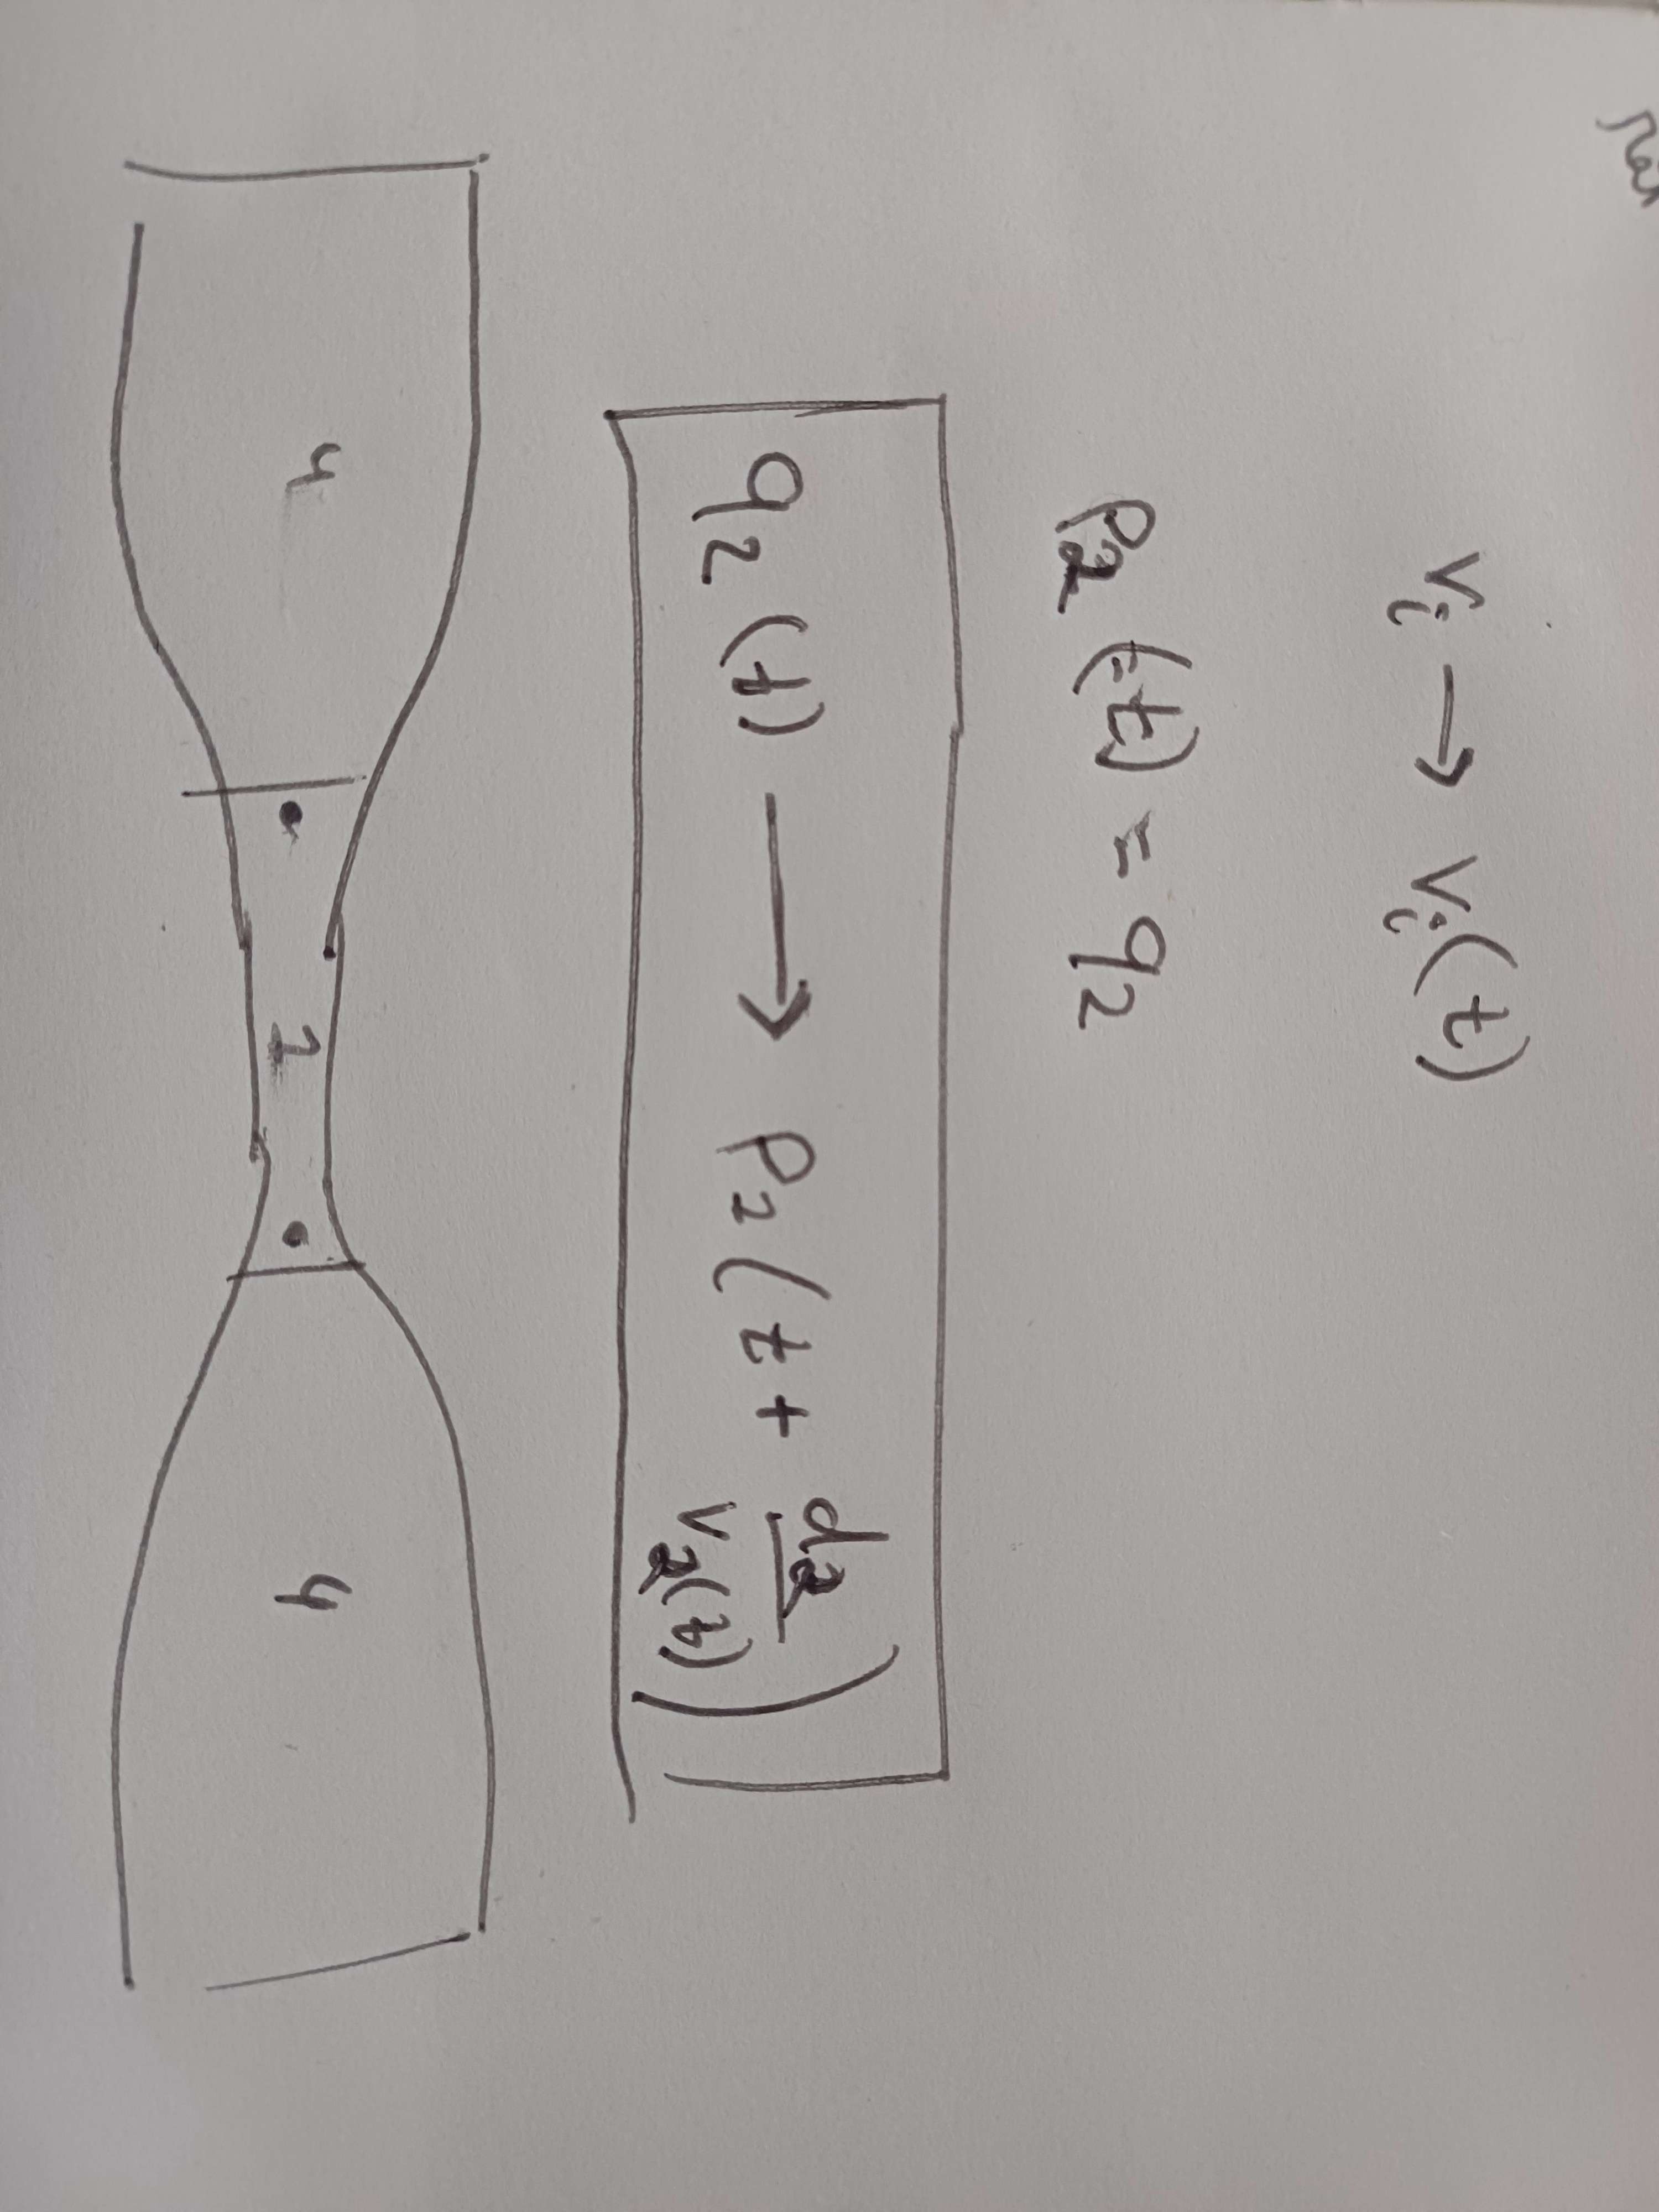 v_i → v_i(t)
p_2 (t) = q_2
q_2 (t) → p_2 (t + d_2 / v_2(t))
4 2 4